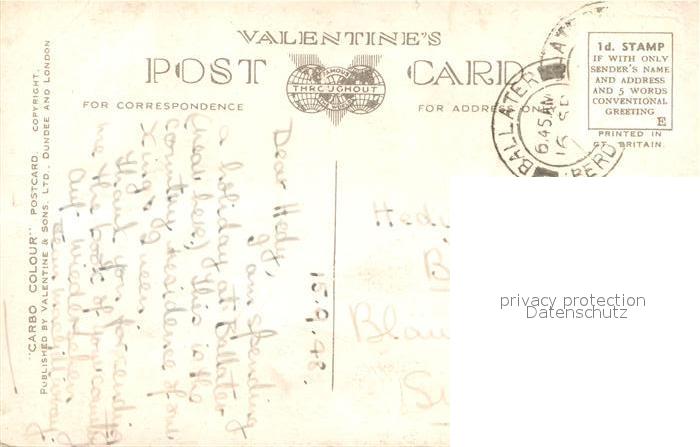 VALENTINE'S
POST CARD
FAMOUS
THROUGHOUT
FOR CORRESPONDENCE
FOR ADDRESS ONLY
1d. STAMP
IF WITH ONLY
SENDER'S NAME
AND ADDRESS
AND 5 WORDS
CONVENTIONAL
GREETING
E
PRINTED IN
GT. BRITAIN.
BALLATER
6.45 AM
16 SP
"CARBO COLOUR" POSTCARD. COPYRIGHT.
PUBLISHED BY VALENTINE & SONS, LTD., DUNDEE AND LONDON
15.9.48.
Dear Hedy,
I am spending
a holiday at Ballater
(near here) This is the
country residence of our
King & Queen.
Thank you for sending
me the book of your country
Auf wiedersehen
Hedy
B
Blau
privacy protection
Datenschutz